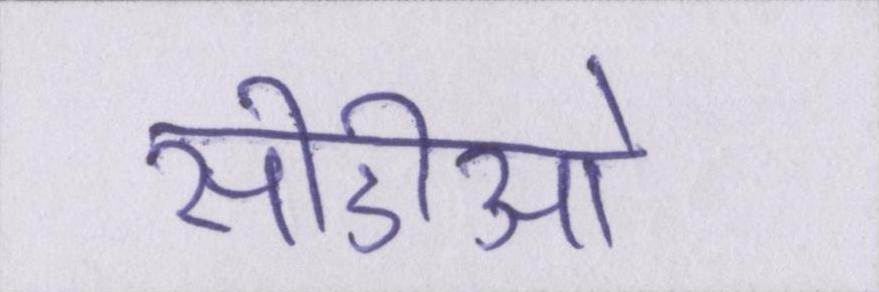 सीडीओ